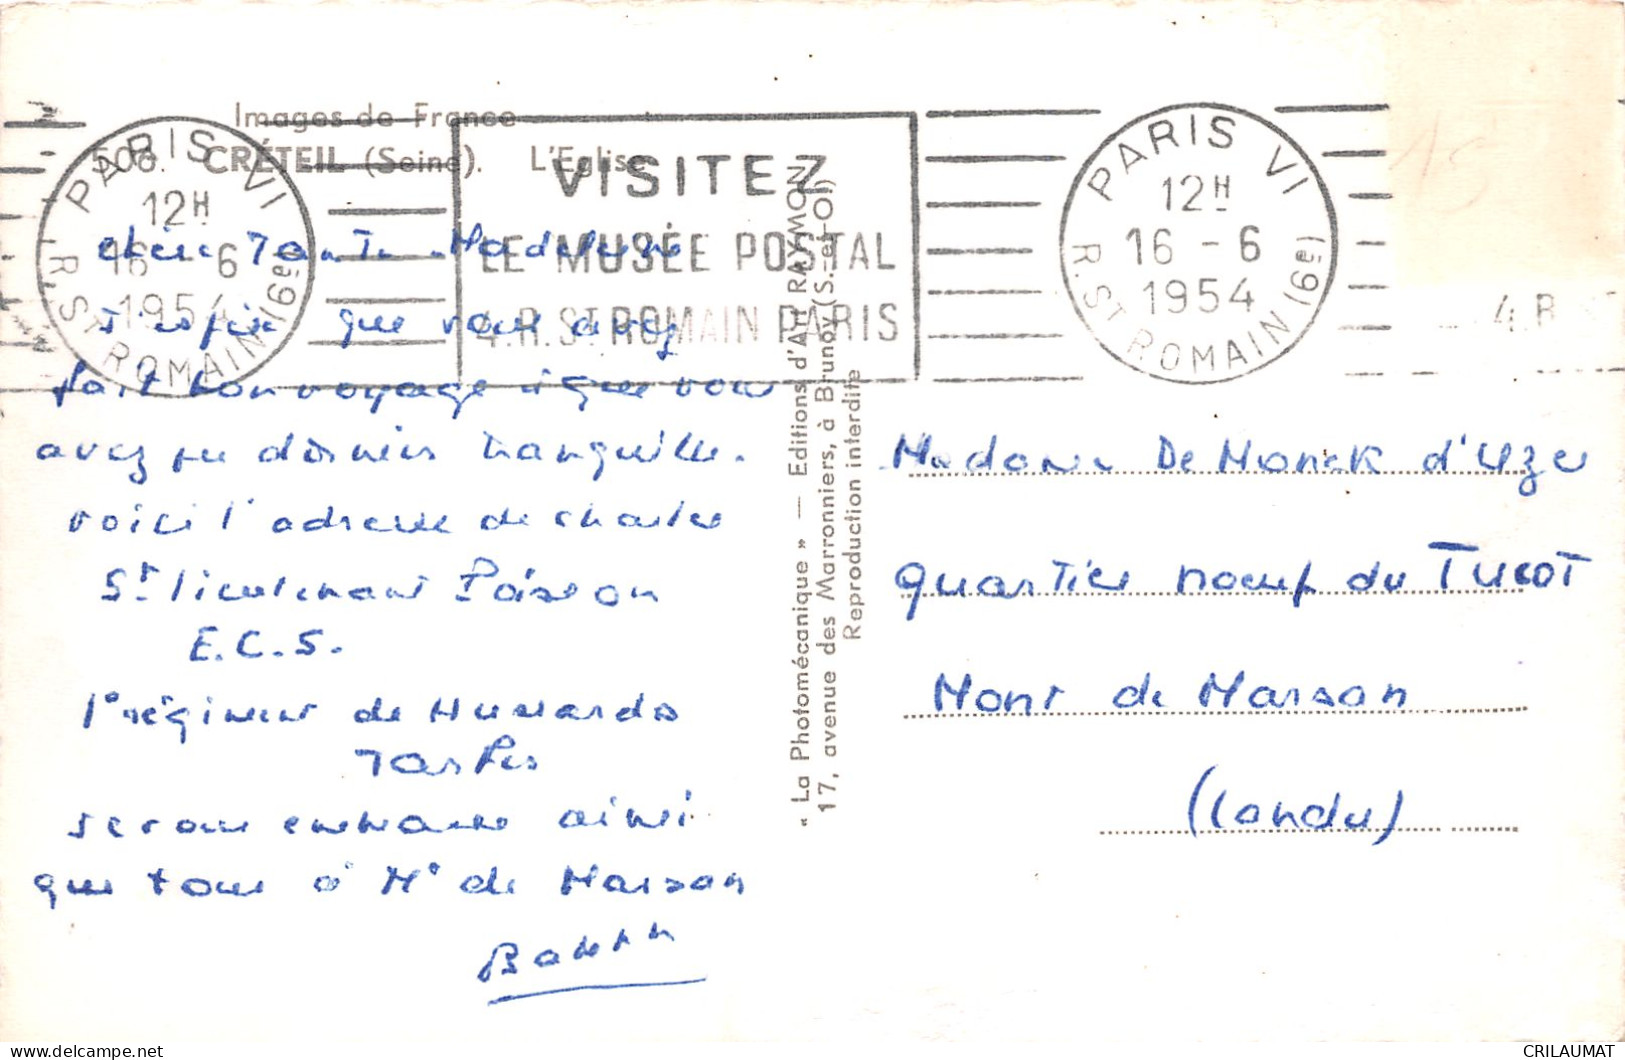 Images de France
506. CRÉTEIL (Seine). L'Eglise
PARIS VI
12H
16 - 6
1954
R. St ROMAIN (6e)
VISITEZ
LE MUSÉE POSTAL
4.R. St ROMAIN PARIS
PARIS VI
12H
16 - 6
1954
R. St ROMAIN (6e)
15
4.R
chère Tante Madeleine
J'espère que vous avez
fait bon voyage et que vous
avez pu dormir tranquille.
voici l'adresse de Charles
St lieutenant Poisson
E.C.S.
1° régiment de Hussards
Tarbes
je vous embrasse ainsi
que tous à Mt de Marsan
« La Photomécanique » — Editions d'Art RAYMON
17, avenue des Marronniers, à Brunoy (S.-et-O.)
Reproduction interdite
Madame De Monck d'Uzer
quartier noeuf du Tucot
Mont de Marsan
(Landes)
delcampe.net
CRILAUMAT